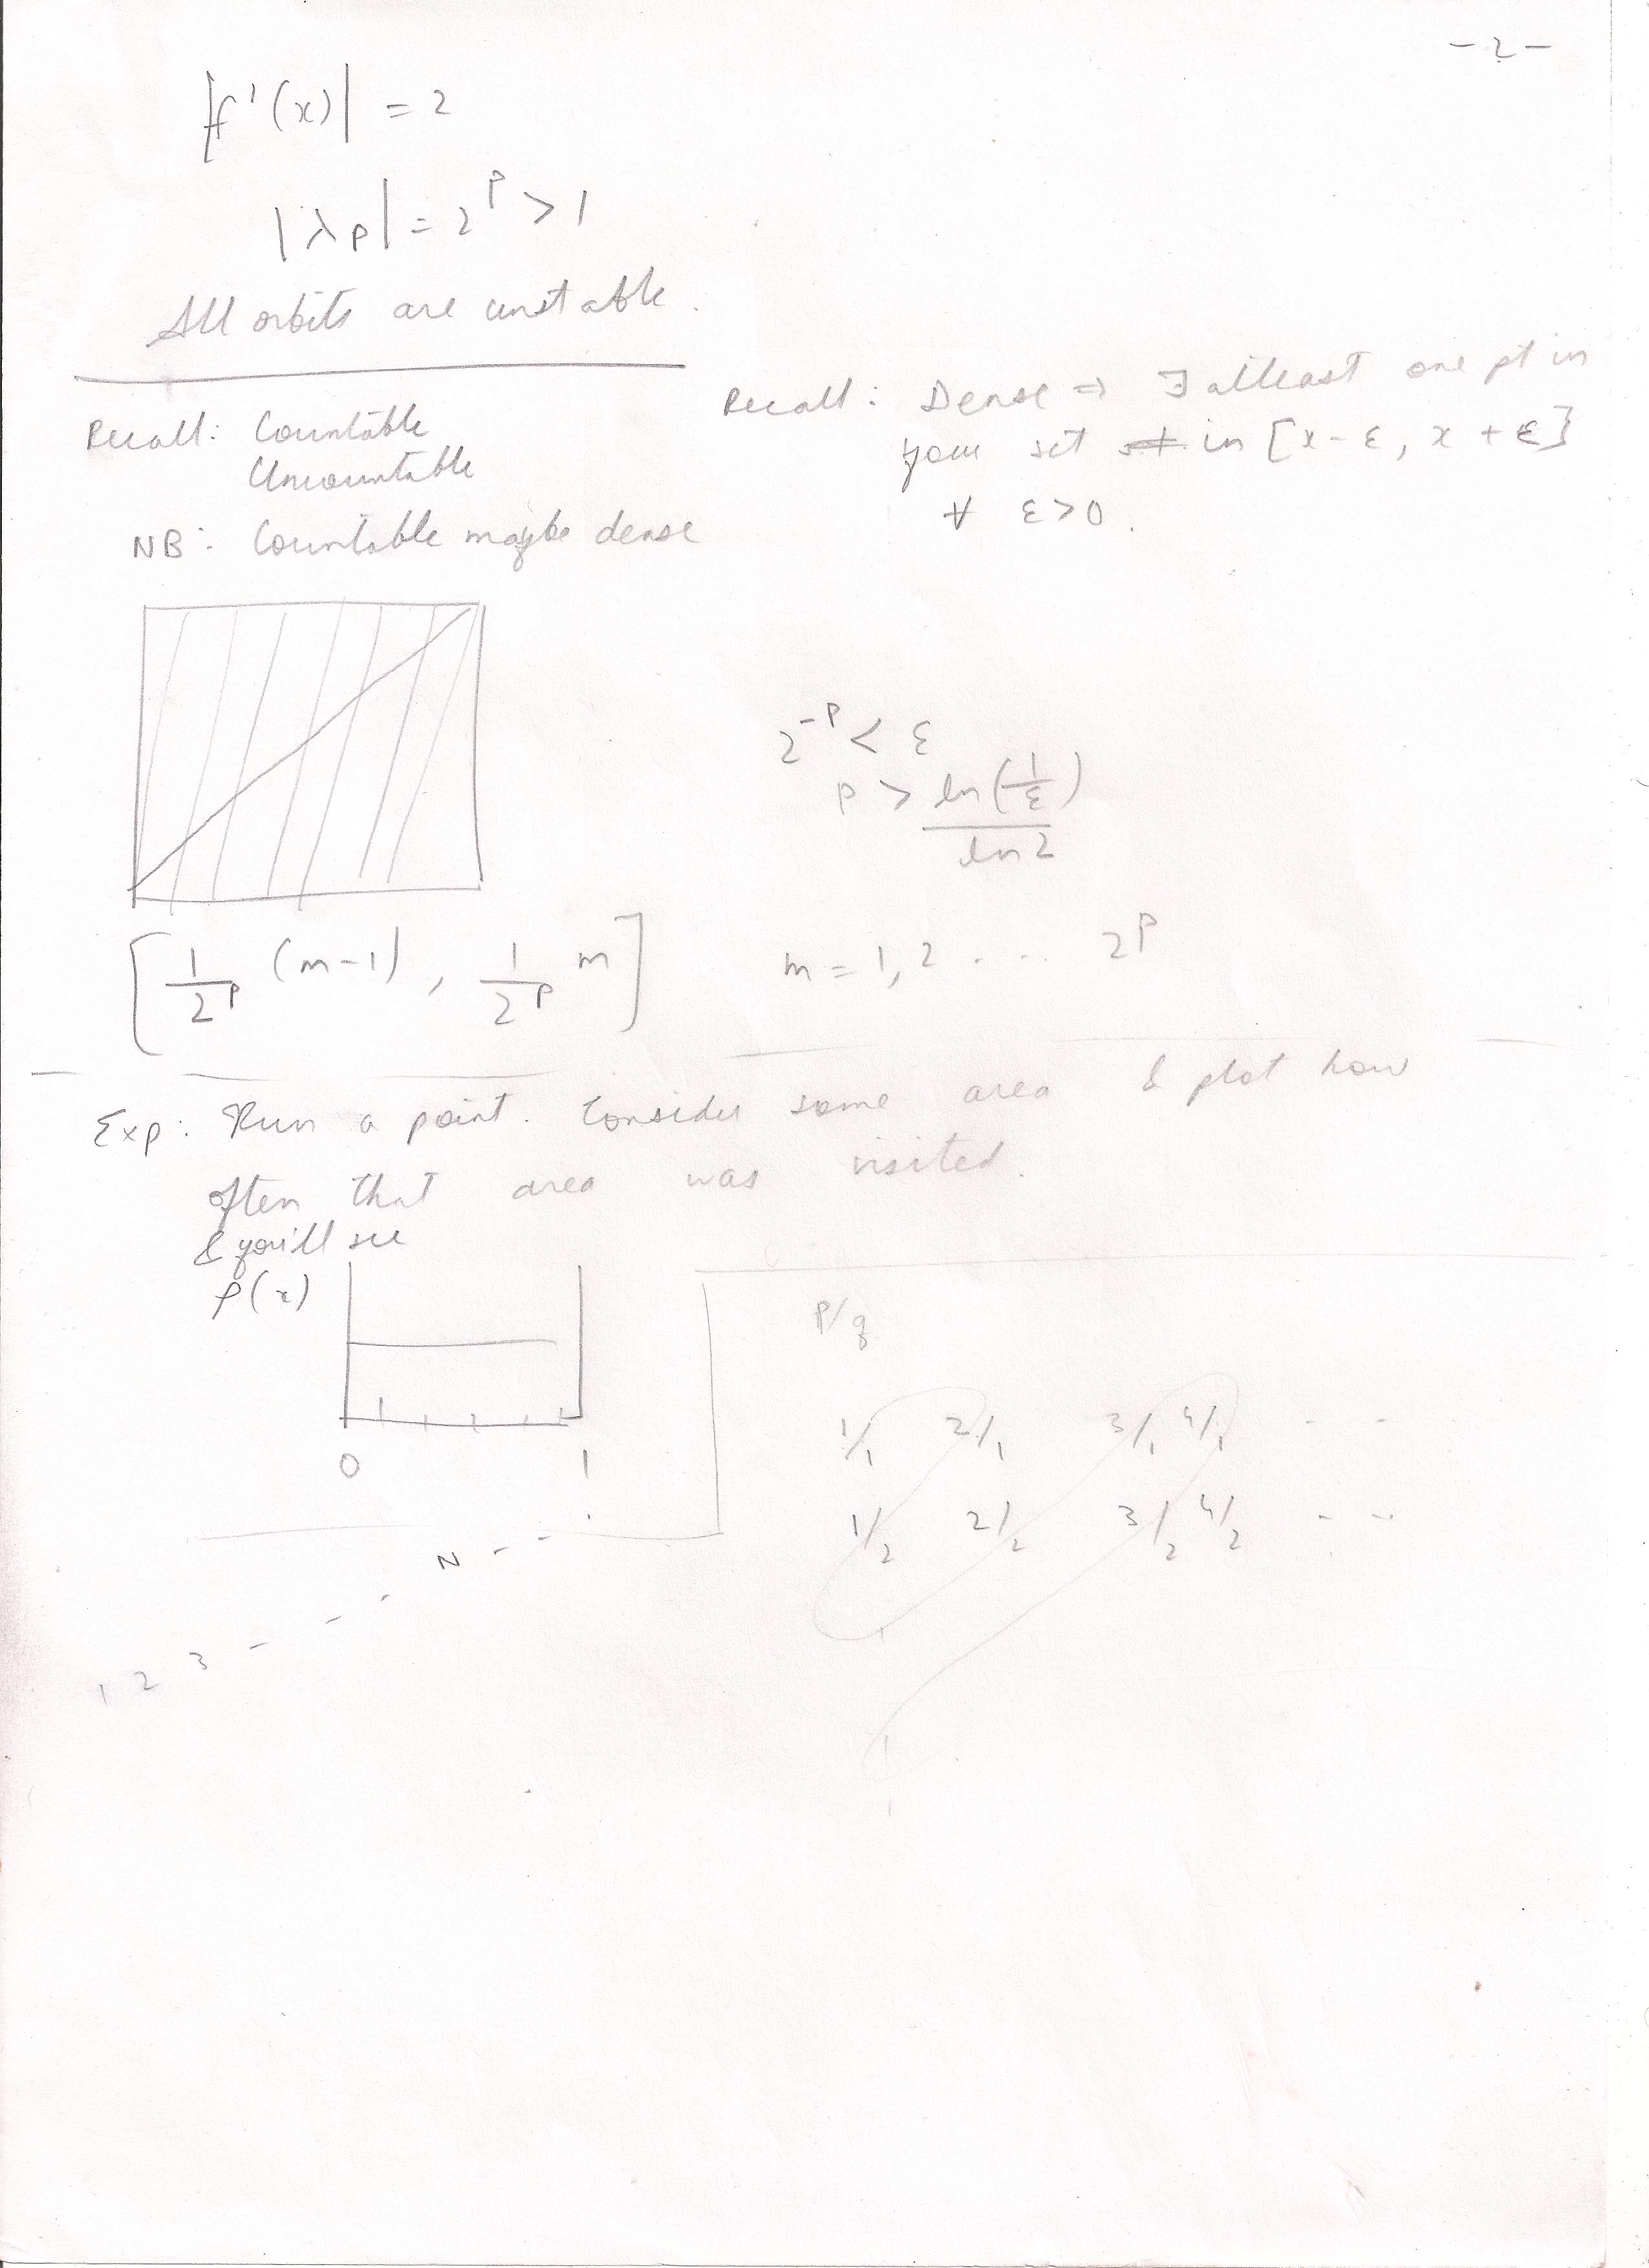 -2-
|f'(x)| = 2
|λp| = 2^p > 1
All orbits are unstable.
Recall: Countable
Uncountable
NB: Countable maybe dense
Recall: Dense ⇒ ∃ atleast one pt in
your set in [x-ε, x+ε]
∀ ε>0.
2^-p < ε
p > ln(1/ε)
ln 2
[1/2^p (m-1), 1/2^p m] m = 1, 2 .... 2^p
Exp: Run a point. Consider some area & plot how
often that area was visited.
& you'll see
ρ(x)
0 1
1 2 3 - - - N - - -
P/q
1/1 2/1 3/1 4/1 - -
1/2 2/2 3/2 4/2 - - -